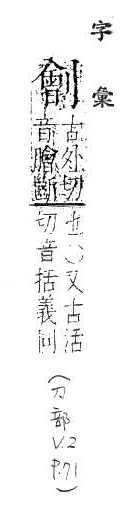 字彙
劊
古外切
音膾斷
也〇又古活
切音括義同
(刀部
V.2
P.71)